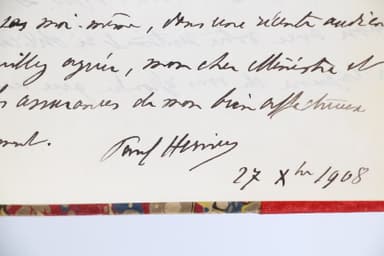 moi-même, dans une récente audien
uillez agréer, mon cher Ministre et
assurances de mon bien affectueux
ment.
Paul Hervieu
27 Xbre 1908